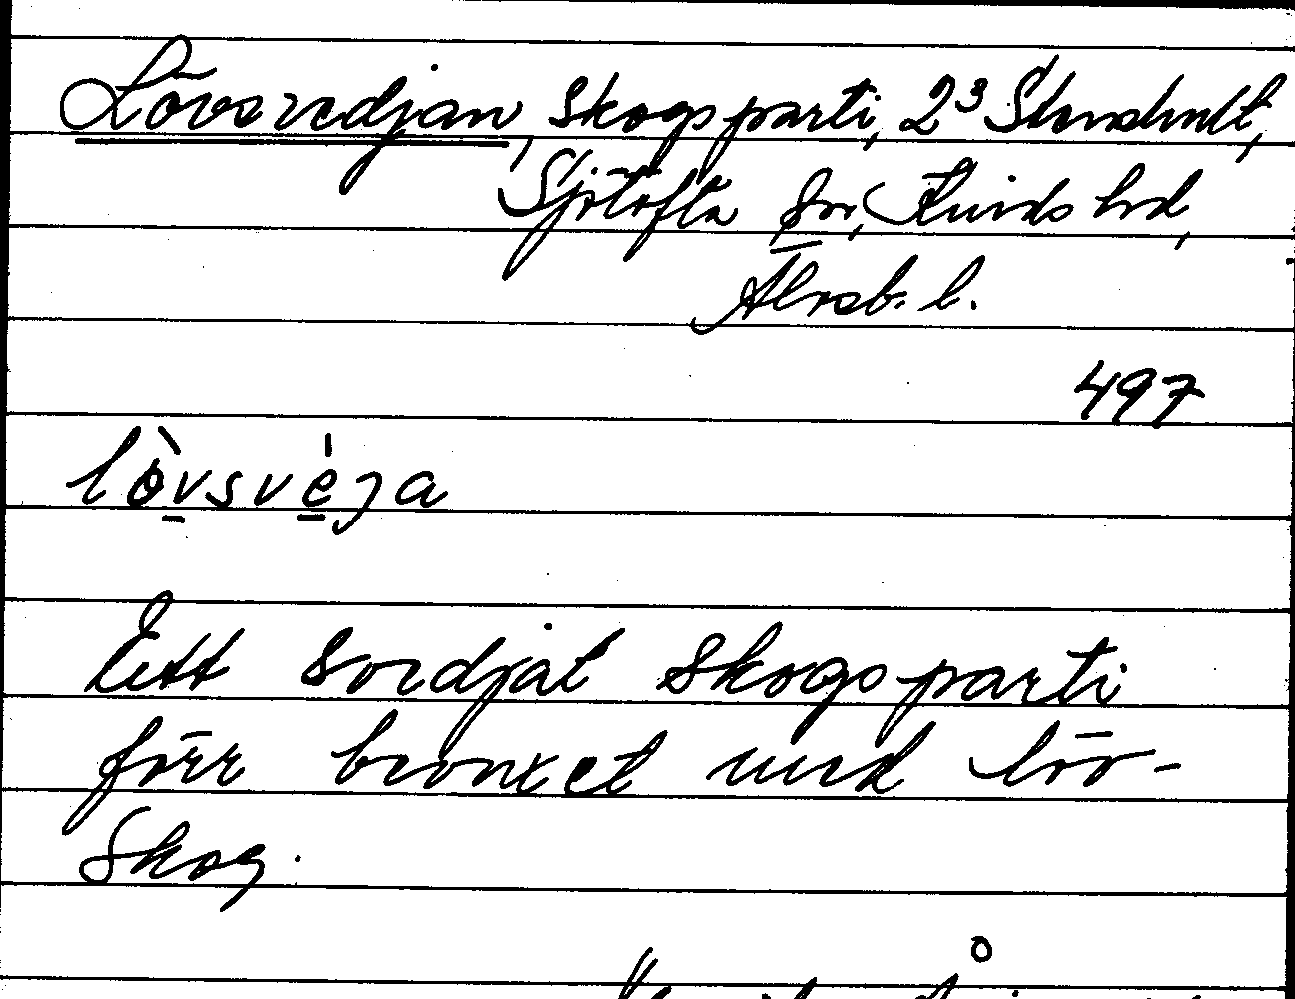 Lövsvedjan, skogsparti, 2³ Stenshult,
Sjötofta sn, Kinds hd,
Älvsb. l.
497
lòvsvèja
Ett svedjat skogsparti
förr bevuxet med löv-
skog.